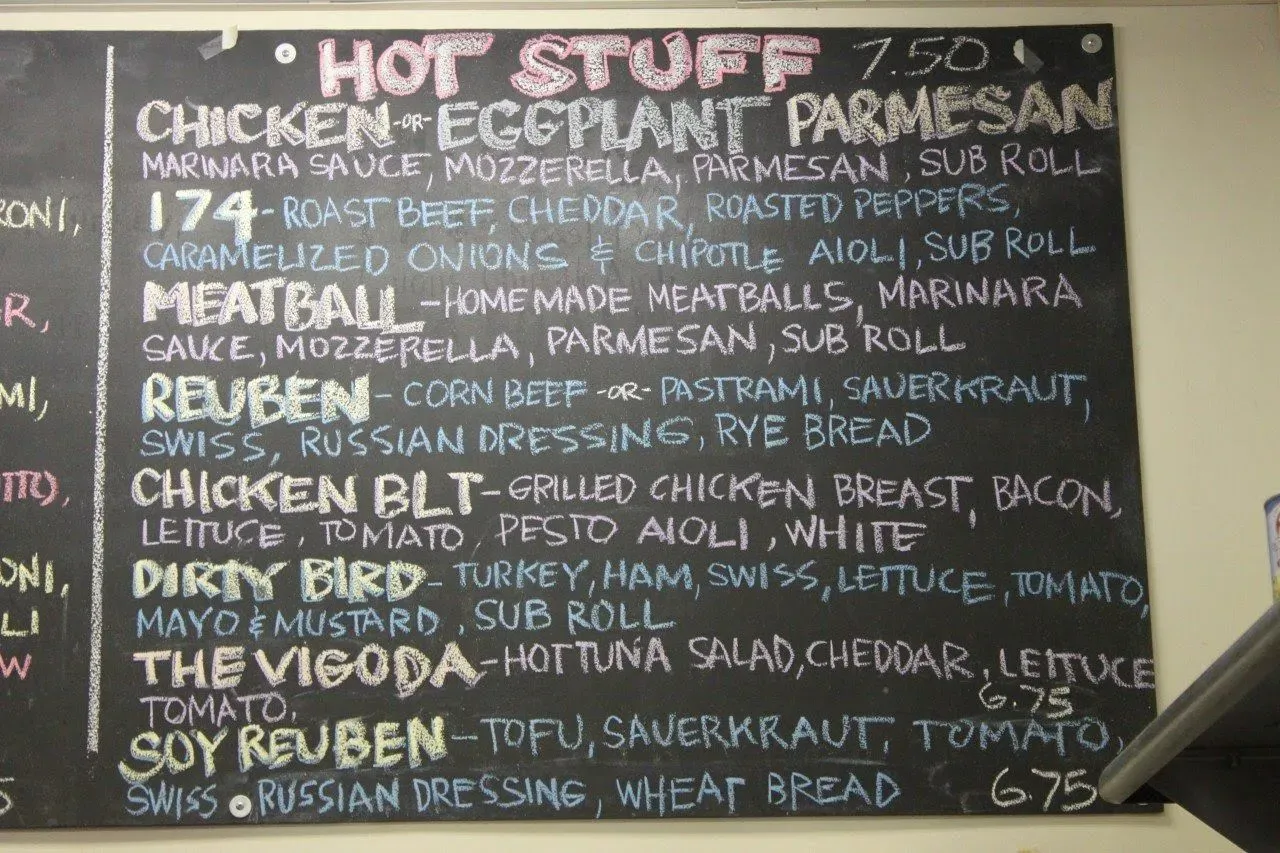 HOT STUFF 7.50
CHICKEN -OR- EGGPLANT PARMESAN
MARINARA SAUCE, MOZZERELLA, PARMESAN, SUB ROLL
174 - ROAST BEEF, CHEDDAR, ROASTED PEPPERS,
CARAMELIZED ONIONS & CHIPOTLE AIOLI, SUB ROLL
MEATBALL - HOMEMADE MEATBALLS, MARINARA
SAUCE, MOZZERELLA, PARMESAN, SUB ROLL
REUBEN - CORN BEEF -OR- PASTRAMI, SAUERKRAUT,
SWISS, RUSSIAN DRESSING, RYE BREAD
CHICKEN BLT - GRILLED CHICKEN BREAST, BACON,
LETTUCE, TOMATO, PESTO AIOLI, WHITE
DIRTY BIRD - TURKEY, HAM, SWISS, LETTUCE, TOMATO,
MAYO & MUSTARD, SUB ROLL
THE VIGODA - HOT TUNA SALAD, CHEDDAR, LETTUCE
TOMATO, 6.75
SOY REUBEN - TOFU, SAUERKRAUT, TOMATO,
SWISS RUSSIAN DRESSING, WHEAT BREAD 6.75